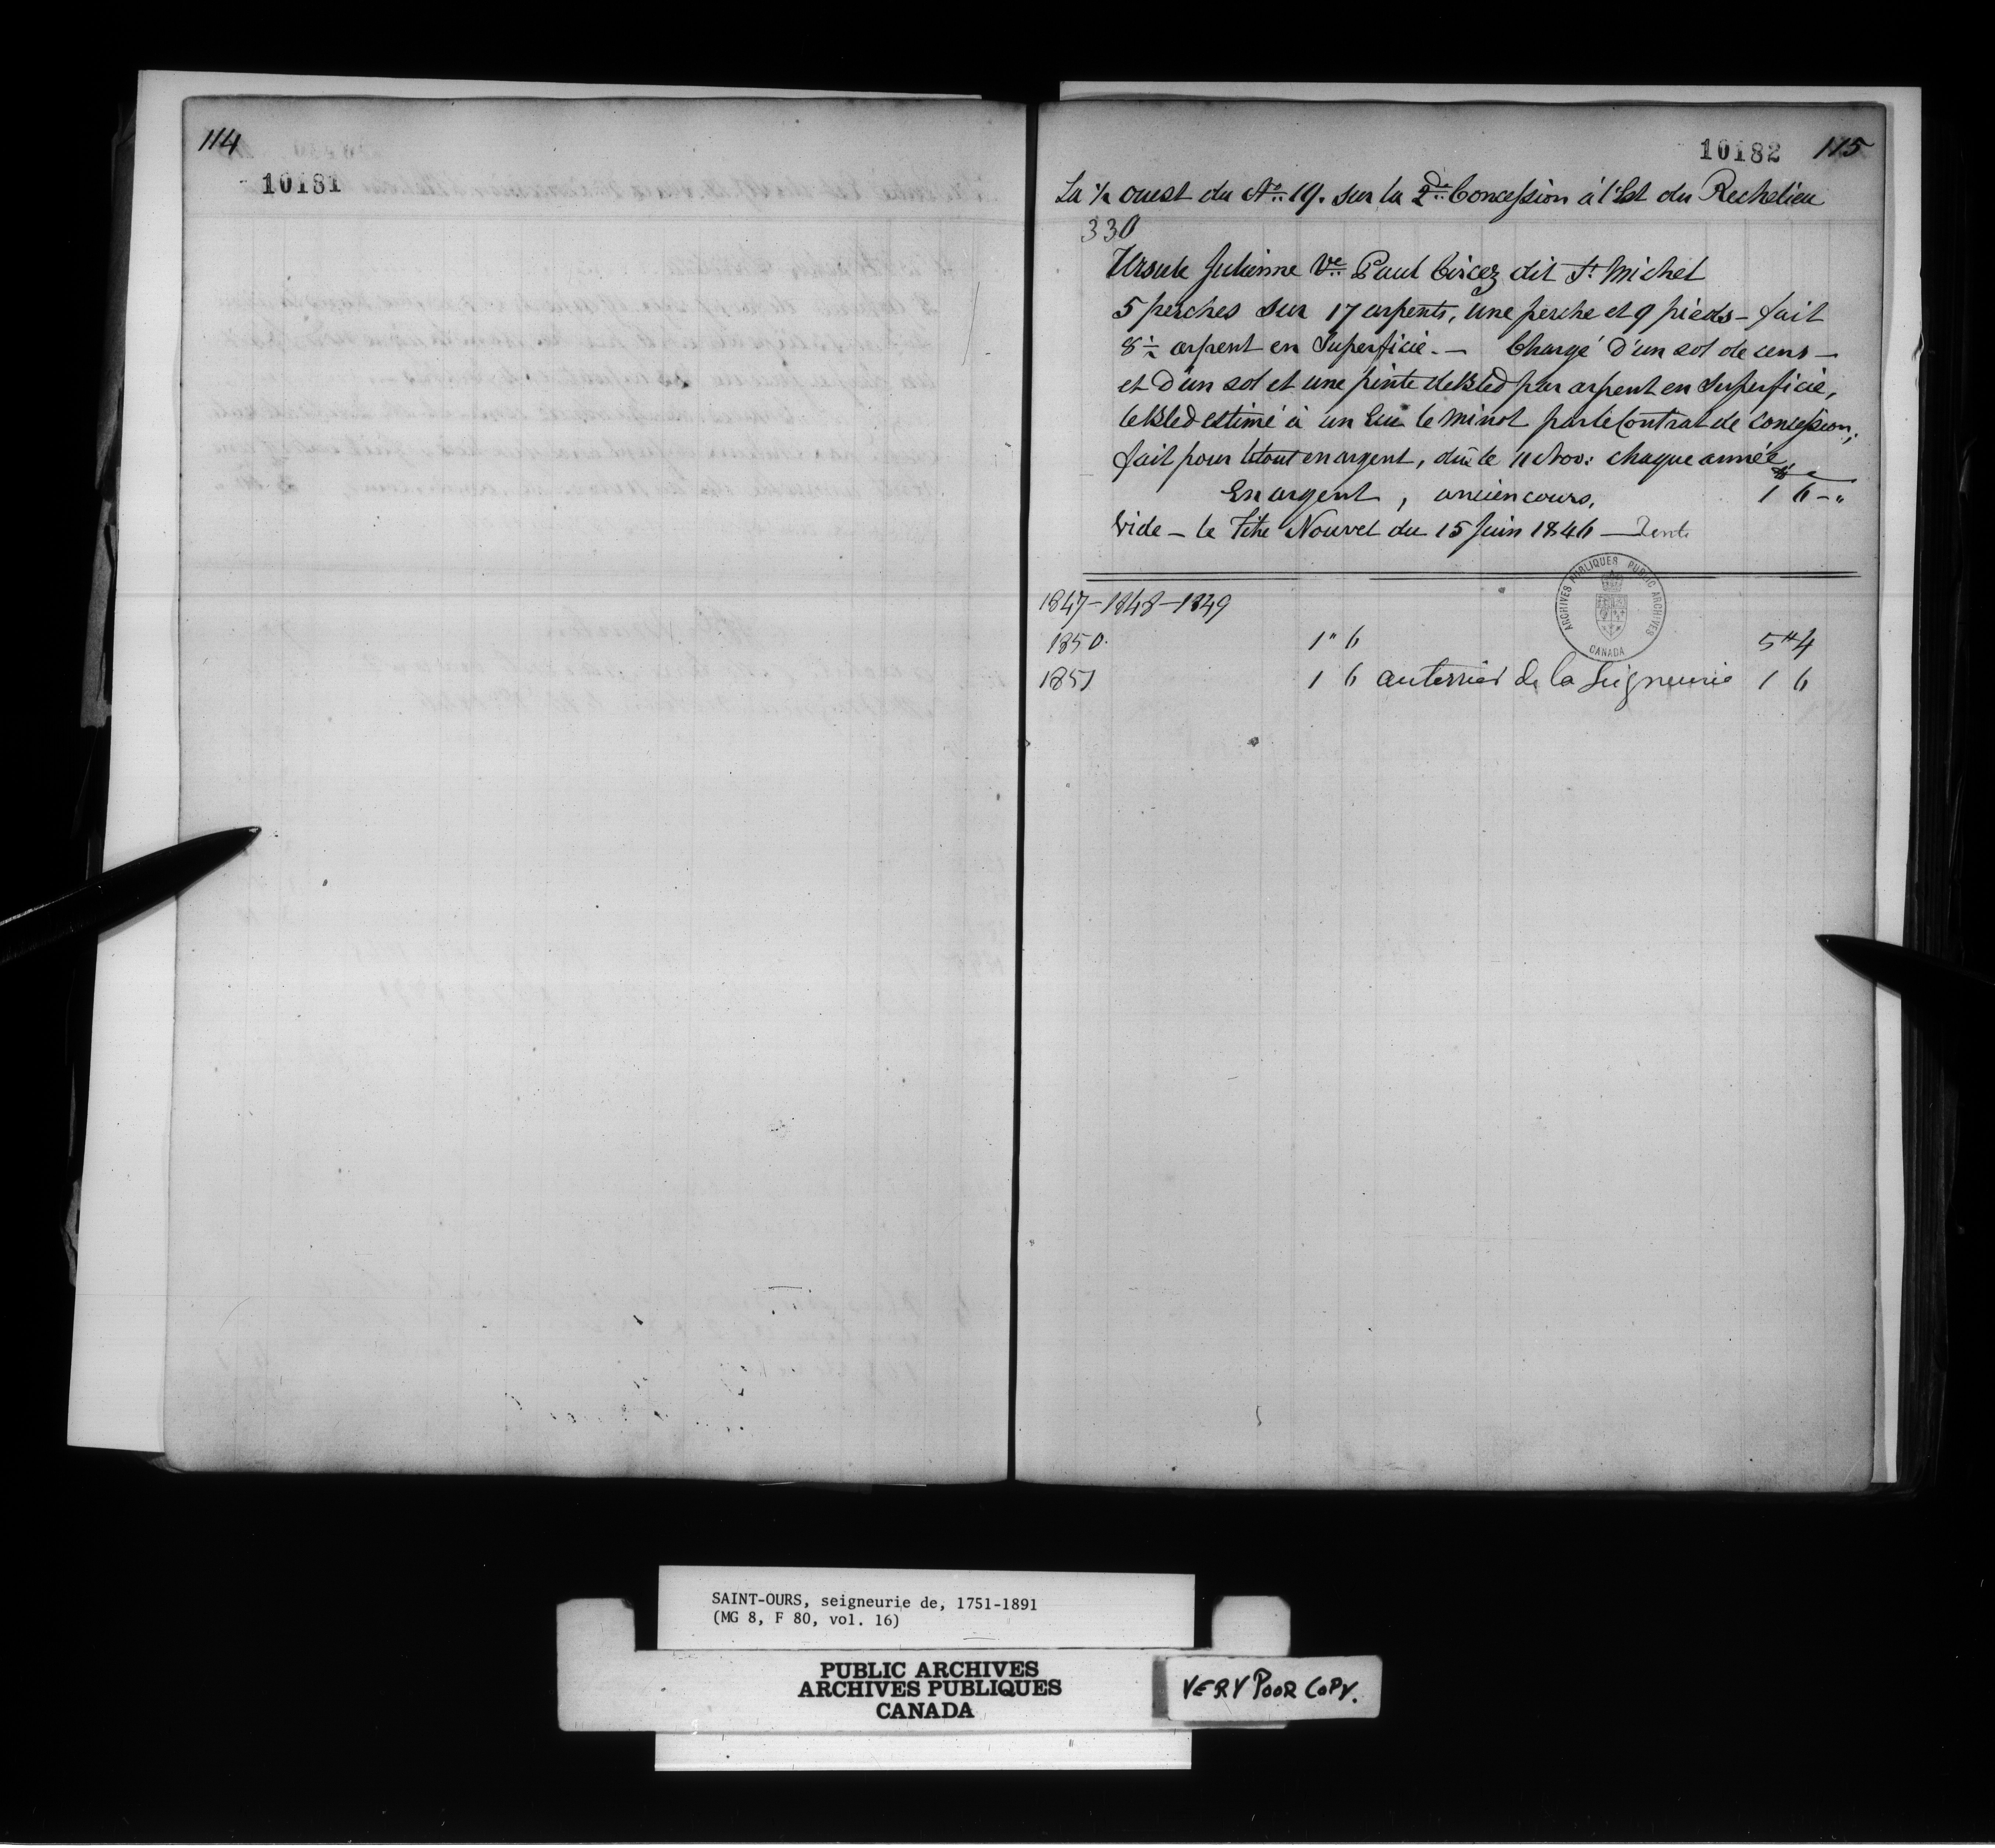 114
10181
10182 115
La ½ ouest du No. 19. sur la 2de Concession à l'Est du Rechelieu
330
Ursule Julienne Ve Paul Circez dit St Michel
5 perches sur 17 arpents, une perche et 9 pieds - fait
8½ arpent en Superficie. — Chargé d'un sol de cens —
et d'un sol et une pinte de Bled par arpent en Superficie,
le Bled estimé à un Ecu le minot par le Contrat de Concession,
fait pour le tout en argent, dû le 11 Nov: chaque année,
En argent, ancien cours, 1 6 - "
Vide - le Titre Nouvel du 15 Juin 1846 —
1847 - 1848 - 1849
1850. 1 " 6 5 # 4
1851 1 6 au terrier de la Seigneurie 1 6
ARCHIVES PUBLIQUES PUBLIC ARCHIVES
CANADA
SAINT-OURS, seigneurie de, 1751-1891
(MG 8, F 80, vol. 16)
PUBLIC ARCHIVES
ARCHIVES PUBLIQUES
CANADA
VERY POOR COPY.